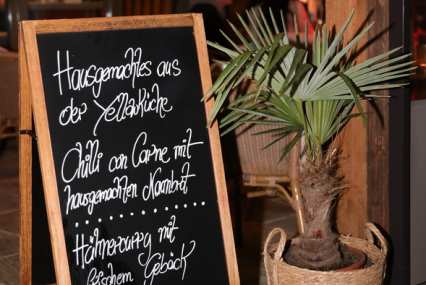 Hausgemachtes aus
der Yellaküche
Chilli con Carne mit
hausgemachten Naanbrot
Hühnercurry mit
frischem Gebäck